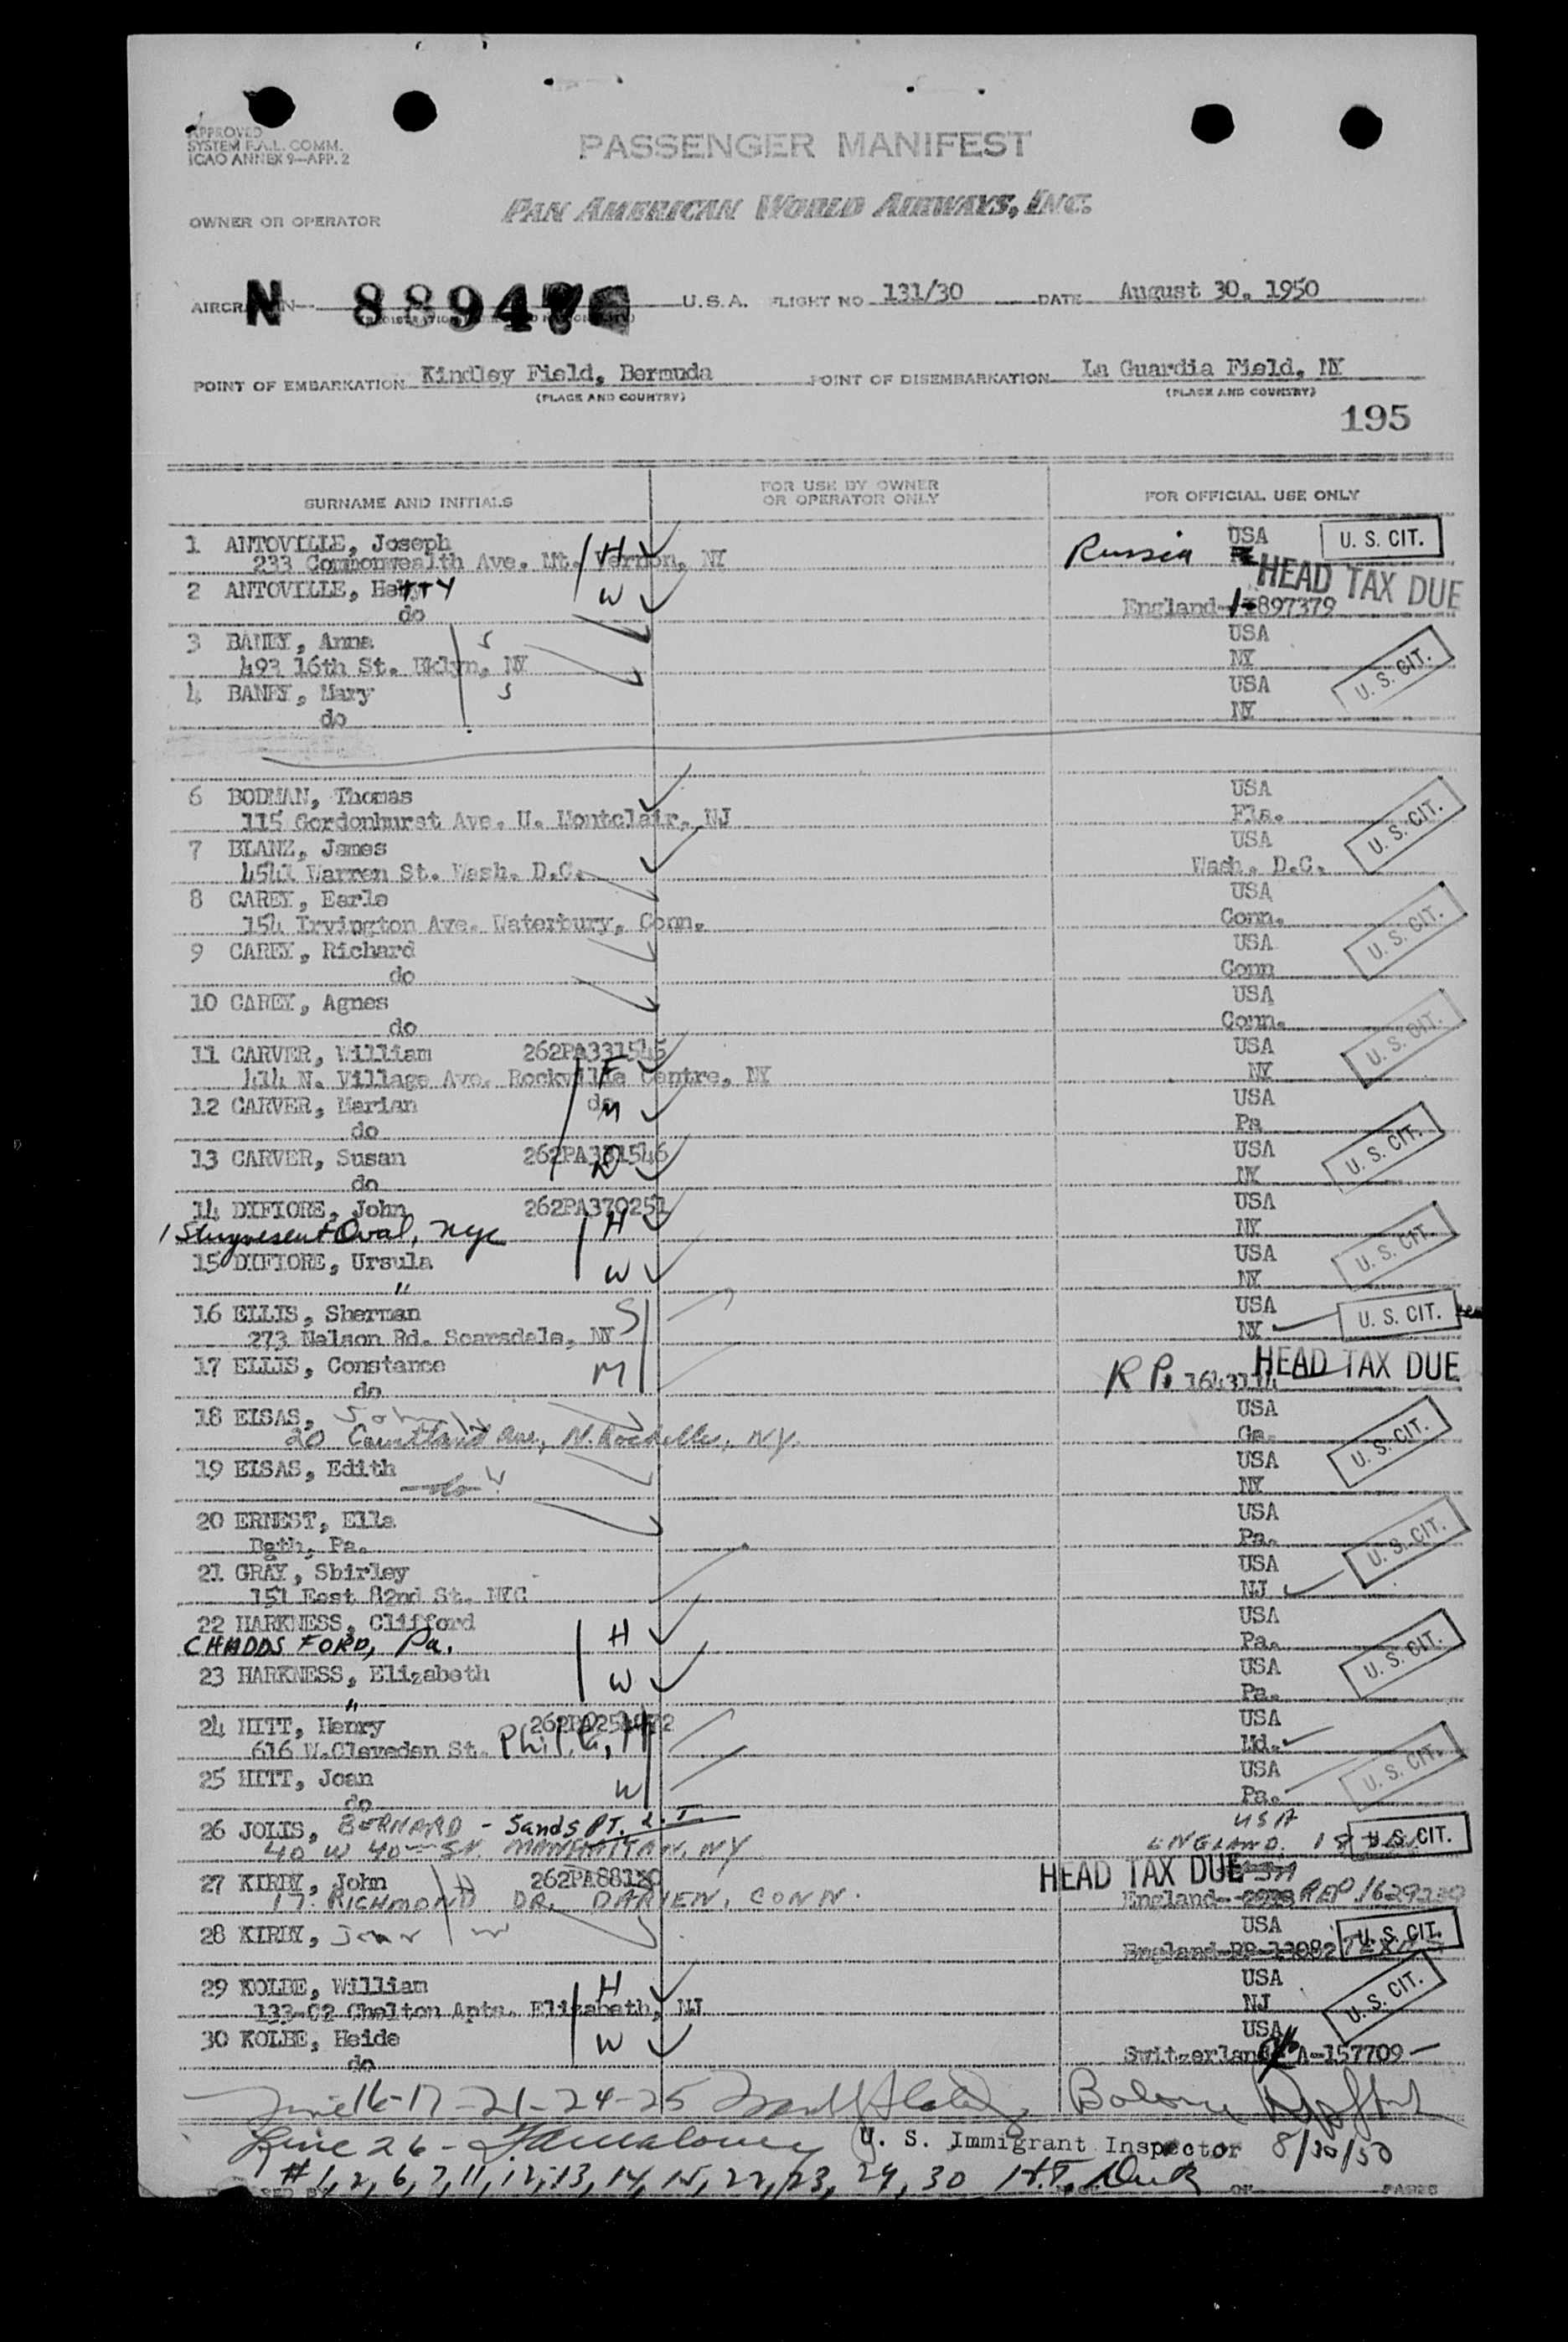 APPROVED
SYSTEM F.A.L. COMM.
ICAO ANNEX 9—APP. 2
PASSENGER MANIFEST
OWNER OR OPERATOR
PAN AMERICAN WORLD AIRWAYS, INC.
N 88947 U.S.A. FLIGHT NO 131/30 DATE August 30, 1950
POINT OF EMBARKATION Kindley Field, Bermuda POINT OF DISEMBARKATION La Guardia Field, NY
(PLACE AND COUNTRY) (PLACE AND COUNTRY)
195
SURNAME AND INITIALS FOR USE BY OWNER OR OPERATOR ONLY FOR OFFICIAL USE ONLY
1 ANTOVILLE, Joseph H USA U. S. CIT.
233 Commonwealth Ave. Mt. Vernon, NY Russia
HEAD TAX DUE
2 ANTOVILLE, Hetty W
do England 897379
3 BANEY, Anna S USA
493 16th St. Bklyn, NY NY U. S. CIT.
4 BANEY, Mary S USA
do NY
6 BODMAN, Thomas USA
115 Gordonhurst Ave. U. Montclair, NJ Fla. U. S. CIT.
7 BLANZ, James USA
4541 Warren St. Wash. D.C. Wash. D.C.
8 CAREY, Earle USA
154 Irvington Ave. Waterbury, Conn. Conn. U. S. CIT.
9 CAREY, Richard USA
do Conn
10 CAREY, Agnes USA
do Conn. U. S. CIT.
11 CARVER, William 262PA331545 F USA
414 N. Village Ave. Rockville Centre, NY NY
12 CARVER, Marian do M USA
do Pa
13 CARVER, Susan 262PA331546 D USA U. S. CIT.
do NY
14 DIFIORE, John 262PA370251 H USA
1 Stuyvesent Oval, NYC NY U. S. CIT.
15 DIFIORE, Ursula W USA
" NY
16 ELLIS, Sherman S USA U. S. CIT.
273 Nelson Rd. Scarsdale, NY NY
17 ELLIS, Constance M HEAD TAX DUE
do R P. 1643114
18 EISAS, USA
20 Ave, N. Rochelle, N.Y. Ga. U. S. CIT.
19 EISAS, Edith W USA
do NY
20 ERNEST, Ella USA
Bgth, Pa. Pa. U. S. CIT.
21 GRAY, Shirley USA
151 East 82nd St. NYC NJ
22 HARKNESS, Clifford H USA
CHADDS FORD, Pa. Pa. U. S. CIT.
23 HARKNESS, Elizabeth W USA
" Pa.
24 HITT, Henry H USA
616 W. Cleveden St. Phila, Md.
25 HITT, Joan W USA U. S. CIT.
do Pa.
26 JOLIS, BERNARD - Sands PT. L.I. USA
40 W 40 St. MANHATTAN, NY ENGLAND. U. S. CIT.
HEAD TAX DUE
27 KIRBY, John H 262PA88130
17 RICHMOND DR. DARIEN, CONN. England REP. 1629230
28 KIRBY, W USA U. S. CIT.
England RP 13082
29 KOLBE, William H USA
133-C2 Chelton Apts. Elizabeth, NJ NJ U. S. CIT.
30 KOLBE, Heide W USA
do Switzerland A-157709
Line 16-17-21-24-25
Line 26 - U. S. Immigrant Inspector 8/30/50
# 1, 2, 6, 7, 11, 12, 13, 14, 15, 22, 23, 29, 30